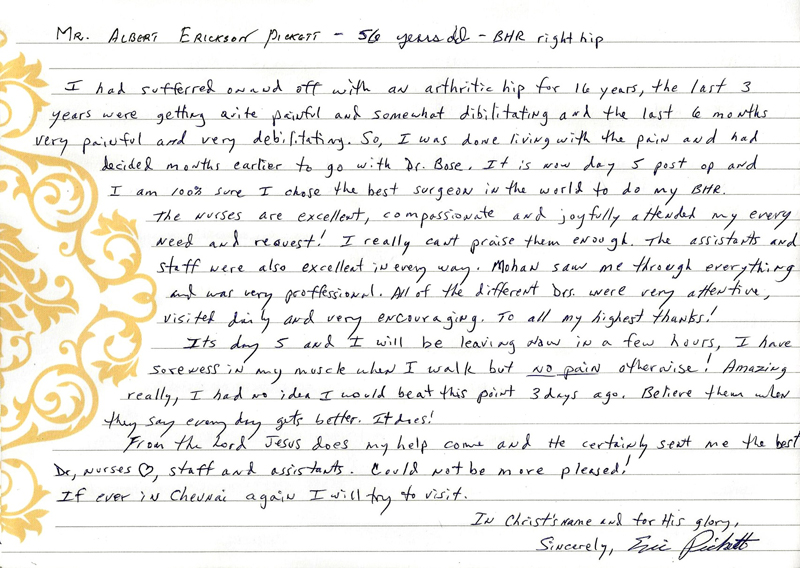 MR. ALBERT ERICKSON PICKETT - 56 years old - BHR right hip
I had sufferred on and off with an arthritic hip for 16 years, the last 3
years were getting quite painful and somewhat dibilitating and the last 6 months
very painful and very debilitating. So, I was done living with the pain and had
decided months earlier to go with Dr. Bose. It is now day 5 post op and
I am 100% sure I chose the best surgeon in the world to do my BHR.
The nurses are excellent, compassionate and joyfully attended my every
need and request! I really cant praise them enough. The assistants and
staff were also excellent in every way. Mohan saw me through everything
and was very proffessional. All of the different Drs. were very attentive,
visited daily and very encouraging. To all my highest thanks!
Its day 5 and I will be leaving now in a few hours, I have
soreness in my muscle when I walk but no pain otherwise! Amazing
really, I had no idea I would be at this point 3 days ago. Believe them when
they say every day gets better. It does!
From the Lord Jesus does my help come and He certainly sent me the best
Dr, nurses ♡, staff and assistants. Could not be more pleased!
If ever in Chennai again I will try to visit.
In Christ's name and for His glory,
Sincerely, Eric Pickett